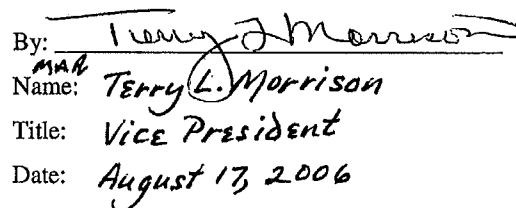 By: Terry L Morrison
MAR
Name: Terry L. Morrison
Title: Vice President
Date: August 17, 2006